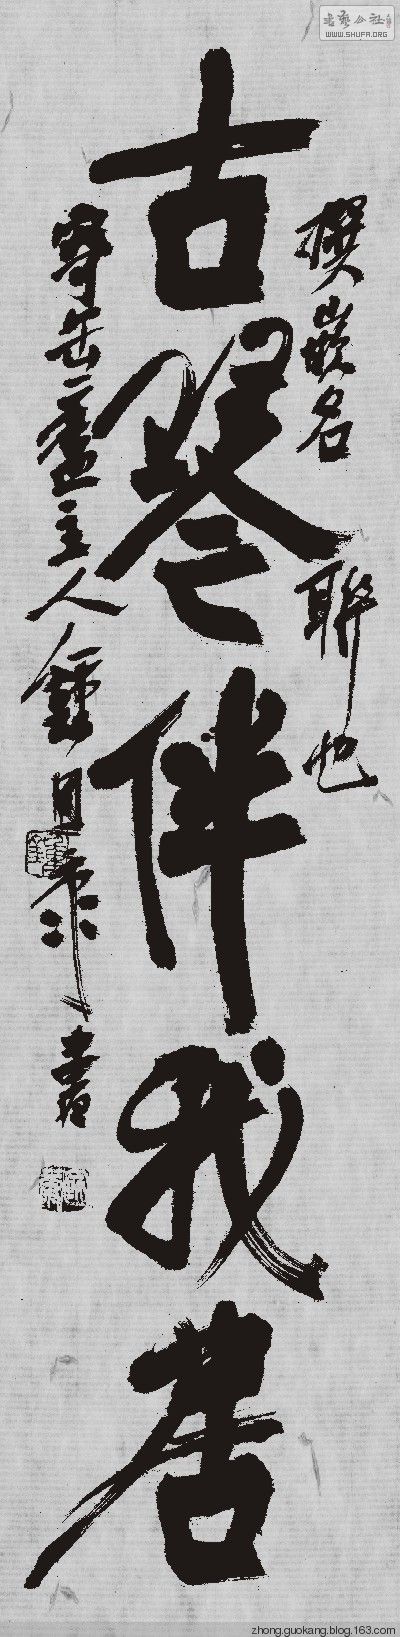 書藝公社
WWW.SHUFA.ORG
撰嵌名聯也
古琴伴我居
寄缶廬主人鍾国康書
zhong.guokang.blog.163.com